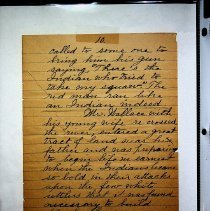 10.
called to some one to
bring him his gun
saying, "There is the
Indian who tried to
take my squaw." The
red man ran like
an Indian indeed.
Mr. Wallace with
his young wife re crossed
the river, entered a great
tract of land near his
father and was preparing
to begin life in earnest
when the Indians became
so bold in their attacks
upon the few white
settlers that it was found
necessary to build